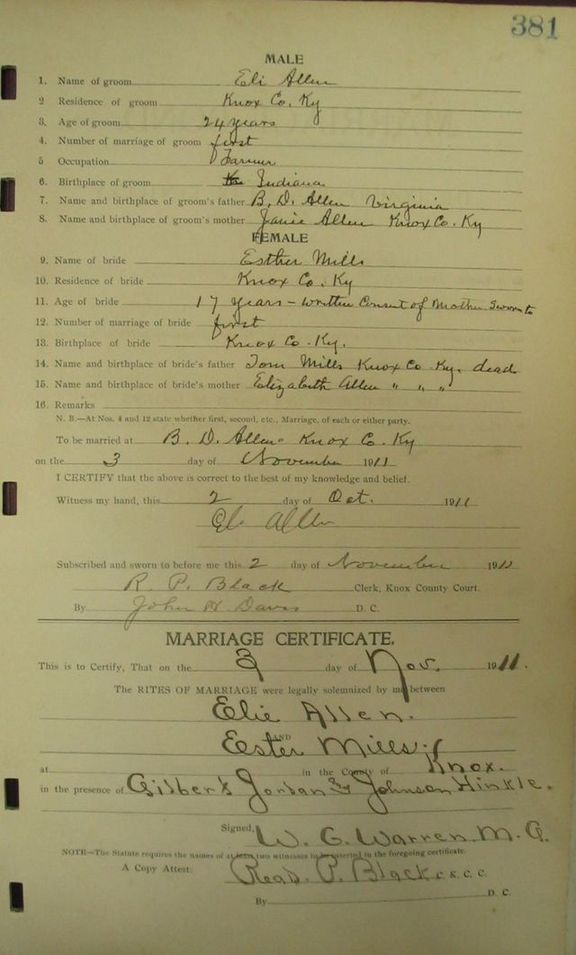 381
MALE
1. Name of groom Eli Allen
2 Residence of groom Knox Co. Ky
3. Age of groom 24 years
4. Number of marriage of groom first
5 Occupation Farmer
6. Birthplace of groom Indiana
7. Name and birthplace of groom's father B. D. Allen Virginia
8. Name and birthplace of groom's mother Janie Allen Knox Co. Ky
FEMALE
9. Name of bride Esther Mills
10. Residence of bride Knox Co. Ky
11. Age of bride 17 years - written Consent of Mother Sworn to
12. Number of marriage of bride first
13. Birthplace of bride Knox Co. Ky.
14. Name and birthplace of bride's father Tom Mills Knox Co Ky. dead
15. Name and birthplace of bride's mother Elizabeth Allen " " "
16. Remarks
N. B.—At Nos. 4 and 12 state whether first, second, etc., Marriage, of each or either party.
To be married at B. D. Allen Knox Co. Ky
on the 3 day of November 1911
I CERTIFY that the above is correct to the best of my knowledge and belief.
Witness my hand, this 2 day of Oct. 1911
Eli Allen
Subscribed and sworn to before me this 2 day of November 1911
R. P. Black Clerk, Knox County Court.
By John H Davis D. C.
MARRIAGE CERTIFICATE.
This is to Certify, That on the 3 day of Nov. 1911.
The RITES OF MARRIAGE were legally solemnized by me between
Elie Allen.
AND
Ester Mills
at in the County of Knox.
in the presence of Gilbert Jordan & Johnson Hinkle.
Signed, W. G. Warren M. G.
NOTE—The Statute requires the names of at least two witnesses to be inserted in the foregoing certificate.
A Copy Attest: Read P. Black C. K. C. C.
By D. C.